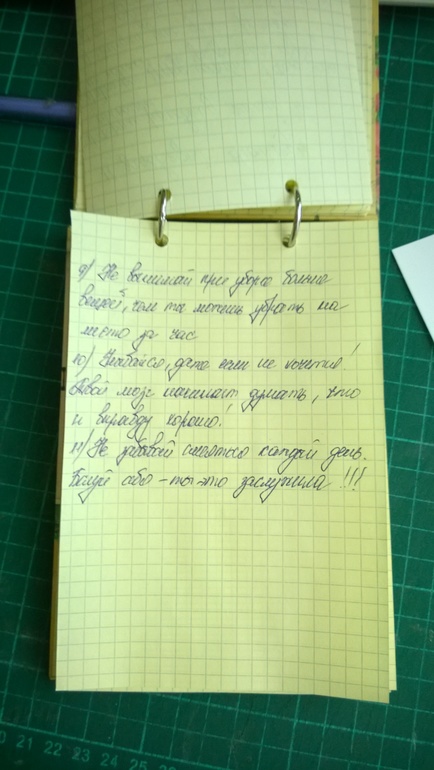 9) Не вынимай при уборке больше
вещей, чем ты можешь убрать на
место за час
10) Улыбайся, даже если не хочется!
Твой мозг начинает думать, что
и вправду хорошо!
11) Не забывай смеяться каждый день.
Балуй себя - ты это заслужила!!!
20 21 22 23 24 25 26 27 28 29